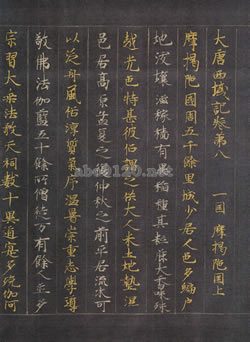 大唐西域記卷第八
一国 摩揭陁国上
摩揭陁國周五千餘里城少居人邑多編戶
地沃壤滋稼穡有異稻種其粒麁大香味殊
越光色特甚彼俗謂之供大人米土地墊濕
邑居高原孟夏之後仲秋之前平居流水可
以泛舟風俗淳質氣序温暑崇重志學尊
敬佛法伽藍五十餘所僧徒万有餘人並多
宗習大乘法教天祠數十異道寔多殑伽河